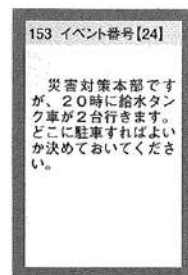 153 イベント番号【24】
災害対策本部です
が、２０時に給水タン
ク車が２台行きます。
どこに駐車すればよい
か決めておいてくださ
い。